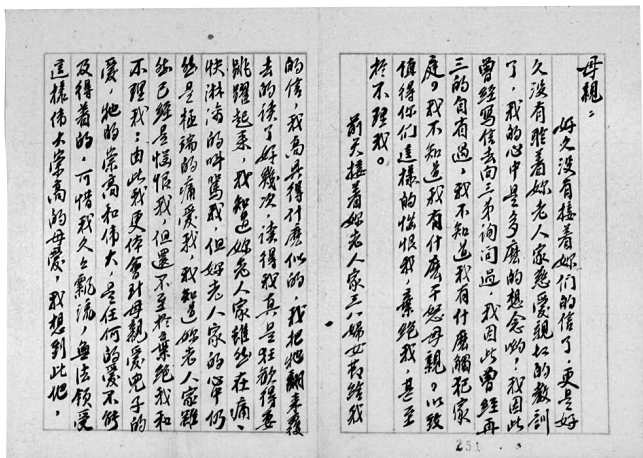 母親：
好久沒有接着妳們的信了，更是好
久沒有聽着妳老人家慈愛親切的教訓
了，我的心中是多麼的想念喲！我因此
曾經寫信去向三弟詢問過，我因此曾經再
三的自省過，我不知道我有什麼觸犯家
庭。我不知道我有什麼干怒母親。以致
值得你們這樣的惱恨我，棄絕我，甚至
於不理我。
前天接着妳老人家三八婦女節給我
的信，我高興得什麼似的，我把牠翻來復
去的讀了好幾次，讀得我真是狂歡得要
跳躍起來，我知道妳老人家雖然在痛、
快淋漓的叫罵我，但妳老人家的心中仍
然是極端的痛愛我，我知道妳老人家雖
然已經是惱恨我，但還不至於棄絕我和
不理我；由此我更体會到母親愛兒子的
愛，牠的崇高和偉大，是任何的愛不能
及得着的，可惜我久久飄流，無法領受
這樣偉大崇高的母愛，我想到此地，
231